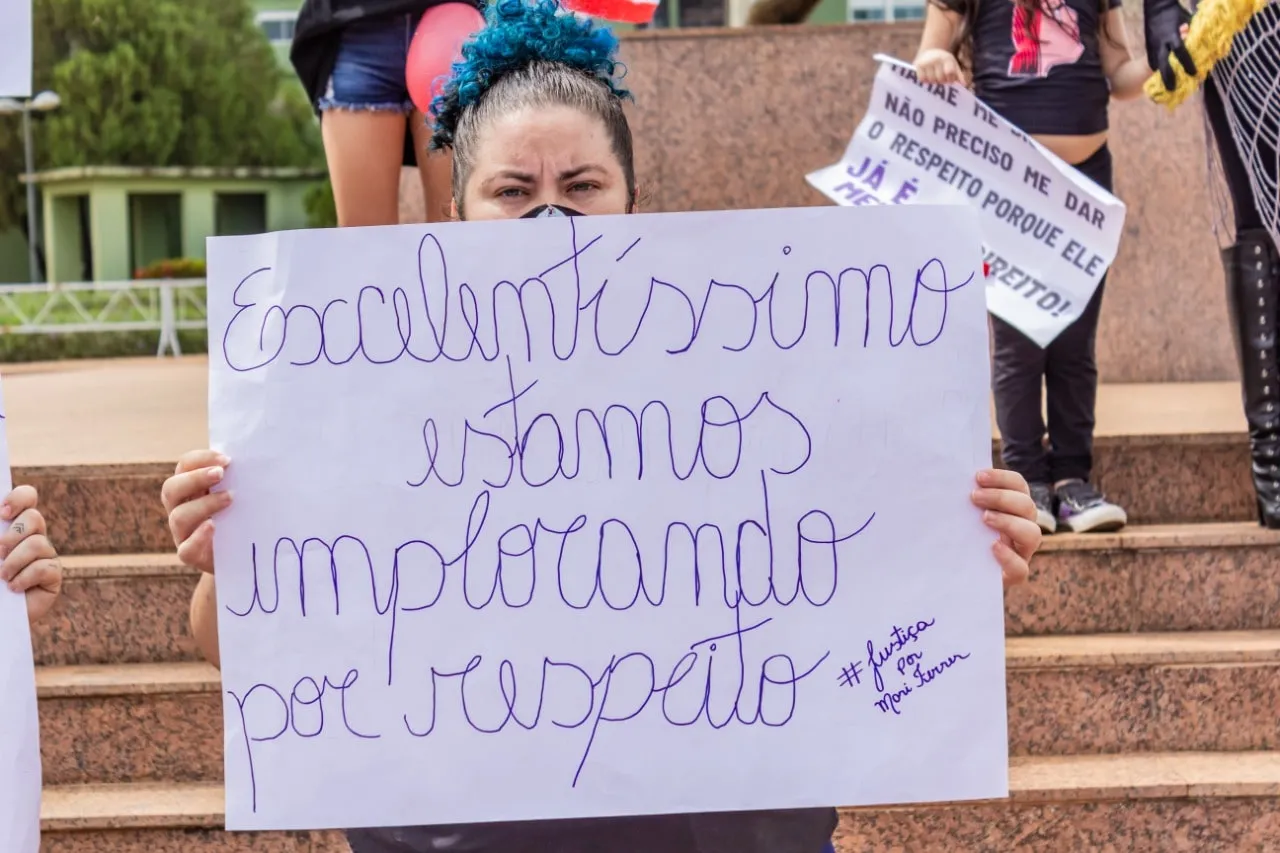 Excelentíssimo
estamos
implorando
por respeito
#Justiça
por
Mari Ferrer
NÃO PRECISO ME DAR
O RESPEITO PORQUE ELE
JÁ É
DIREITO!